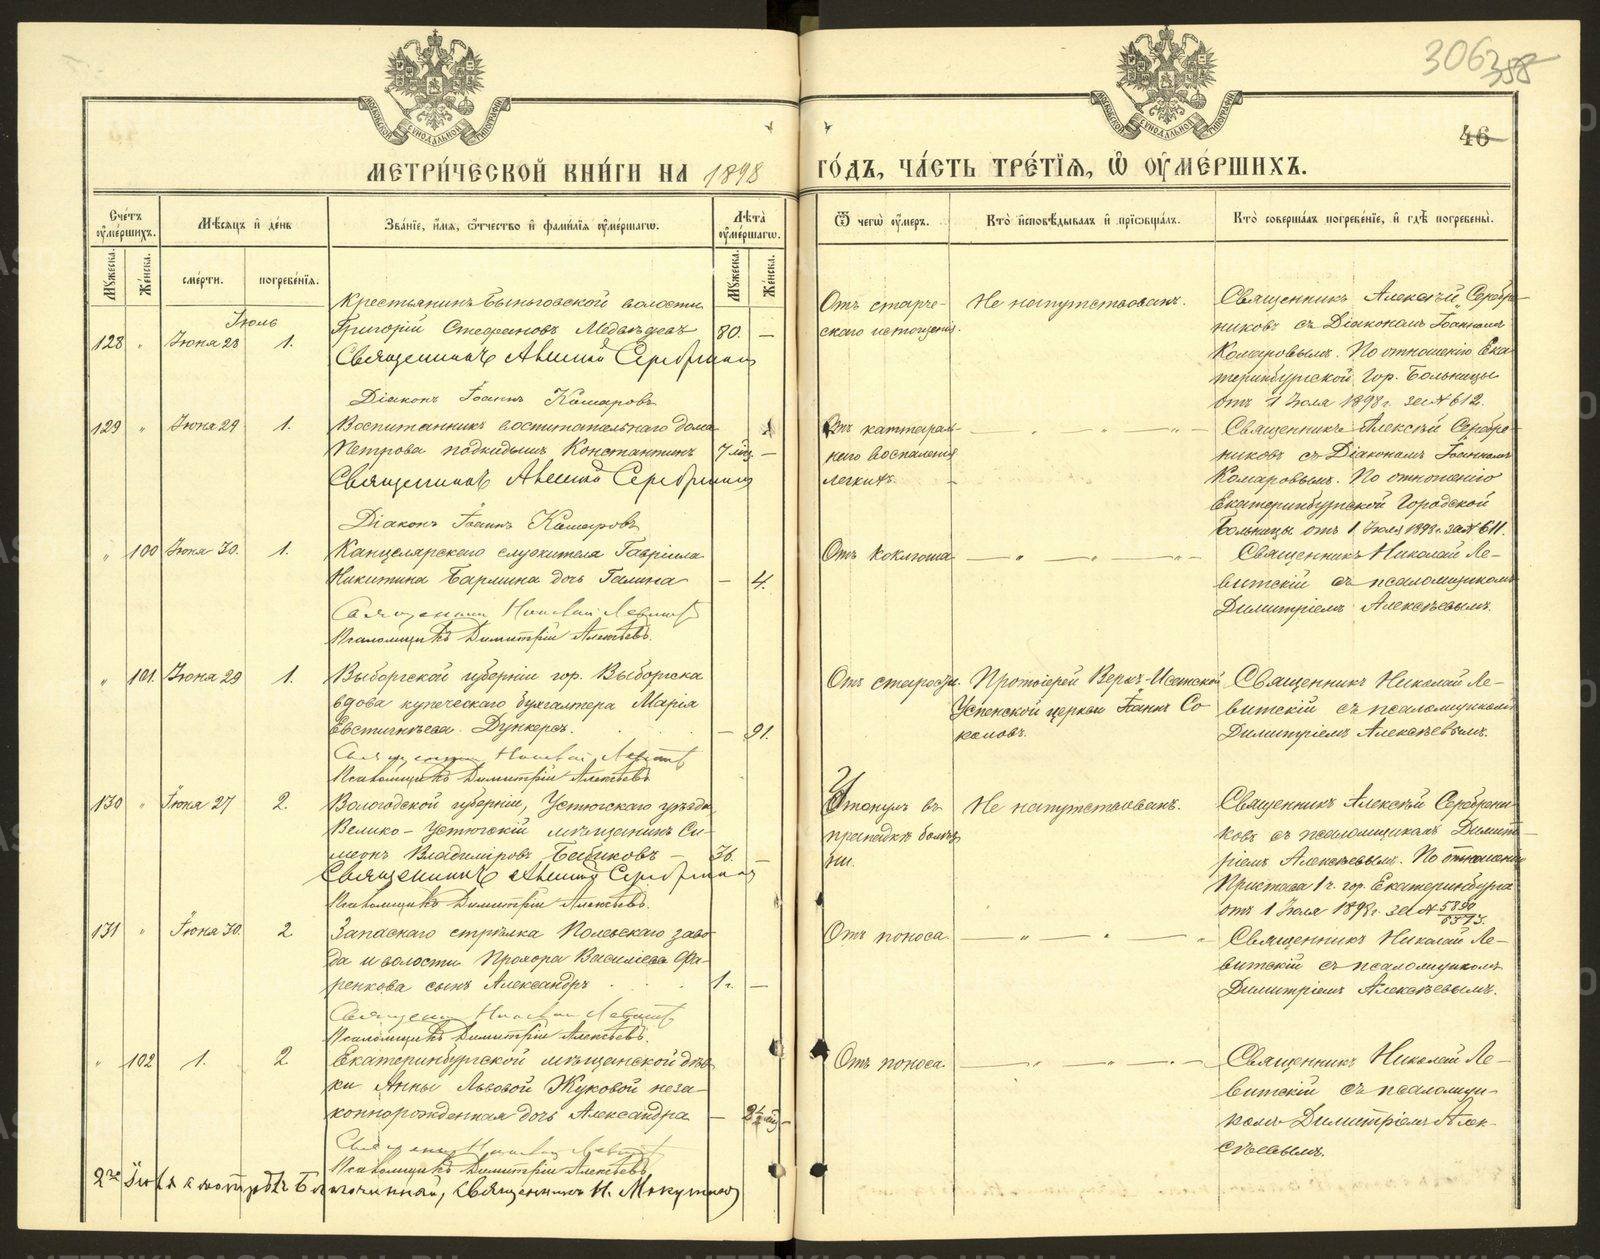 306 358
46
МЕТРИ́ЧЕСКОЙ КНИ́ГИ НА 1898 ГО́ДЪ, ЧА́СТЬ ТРЕ́ТІѦ, Ѡ҆ ОУ҆МЕ́РШИХЪ.
Сче́тъ оу҆ме́ршихъ.
Мѣ́сѧцъ и҆ де́нь
Зва́нїе, и҆́мѧ, ѻ҆́тчество и҆ фами́лїѧ оу҆ме́ршагѡ.
Лѣ́та оу҆ме́ршагѡ.
Ѿ чегѡ̀ оу҆́меръ.
Кто̀ и҆сповѣ́дывалъ и҆ прїѡбща́лъ.
Кто̀ соверша́лъ погребе́нїе, и҆ гдѣ̀ погребены̀.
Мꙋ́жеска.
Же́нска.
сме́рти.
погребе́нїѧ.
Мꙋ́жеска.
Же́нска.
Іюль
128 " Іюня 28 1.
Крестьянинъ Быньговской волости
Григорій Стефановъ Медвѣдевъ 80. —
Священникъ Алексій Серебрениковъ
Діаконъ Іоаннъ Комаровъ
Отъ старче-
скаго истощенія.
Не напутствованъ.
Священникъ Алексій Серебре-
никовъ съ Діакономъ Іоанномъ
Комаровымъ. По отношенію Ека-
теринбургской Гор. Больницы
отъ 1 Іюля 1898 г. за № 612.
129 " Іюня 29 1.
Воспитанникъ воспитательнаго дома
Петрова подкидышъ Константинъ 7 мѣс. —
Священникъ Алексій Серебрениковъ
Діаконъ Іоаннъ Комаровъ
Отъ каттараль-
наго воспаленія
легкихъ.
— " — " — " —
Священникъ Алексій Серебре-
никовъ съ Діакономъ Іоанномъ
Комаровымъ. По отношенію
Екатеринбургской Городской
Больницы отъ 1 Іюля 1898 г. за № 611.
" 100 Іюня 30. 1.
Канцелярскаго служителя Гавріила
Никитина Бармина дочь Галина — 4.
Священникъ Николай Левитскій
Псаломщикъ Димитрій Алексѣевъ.
Отъ коклюша
— " — " — " —
Священникъ Николай Ле-
витскій съ псаломщикомъ
Димитріемъ Алексѣевымъ.
" 101. Іюня 29 1.
Выборгской губерніи гор. Выборгска
вдова купеческаго бухгалтера Марія
Евстигнѣева Дункерсъ. — 91.
Священникъ Николай Левитскій
Псаломщикъ Димитрій Алексѣевъ
Отъ старости.
Протоіерей Верхъ-Исетской
Успенской церкви Іоаннъ Со-
коловъ.
Священникъ Николай Ле-
витскій съ псаломщикомъ
Димитріемъ Алексѣевымъ.
130 " Іюня 27 2.
Вологодской губерніи, Устюгскаго уѣзда
Велико-Устюгскій мѣщанинъ Си-
меонъ Владиміровъ Бабиковъ — 36. —
Священникъ Алексій Серебрениковъ
Псаломщикъ Димитрій Алексѣевъ.
Утонулъ въ
припадкѣ болѣз-
ни.
Не напутствованъ.
Священникъ Алексій Серебрени-
ковъ съ псаломщикомъ Димит-
ріемъ Алексѣевымъ. По отношенію
Пристава 1 ч. гор. Екатеринбурга
отъ 1 Іюля 1898 г. за №
131 " Іюня 30. 2
Запаснаго стрѣлка Полевскаго заво-
да и волости Прохора Василіева Фа-
ренкова сынъ Александръ 1 г. —
Священникъ Николай Левитскій
Псаломщикъ Димитрій Алексѣевъ.
Отъ поноса
— " — " — "
Священникъ Николай Ле-
витскій съ псаломщикомъ
Димитріемъ Алексѣевымъ.
" 102 1. 2
Екатеринбургской мѣщанской дѣв-
ки Анны Львовой Жуковой неза-
коннорожденная дочь Александра — 2½ мѣс.
Священникъ Николай Левитскій
Псаломщикъ Димитрій Алексѣевъ
Отъ поноса.
— " — " — " —
Священникъ Николай Ле-
витскій съ псаломщи-
комъ Димитріемъ Алек-
сѣевымъ.
2го Іюля смотрѣлъ Благочинный, священникъ Н.